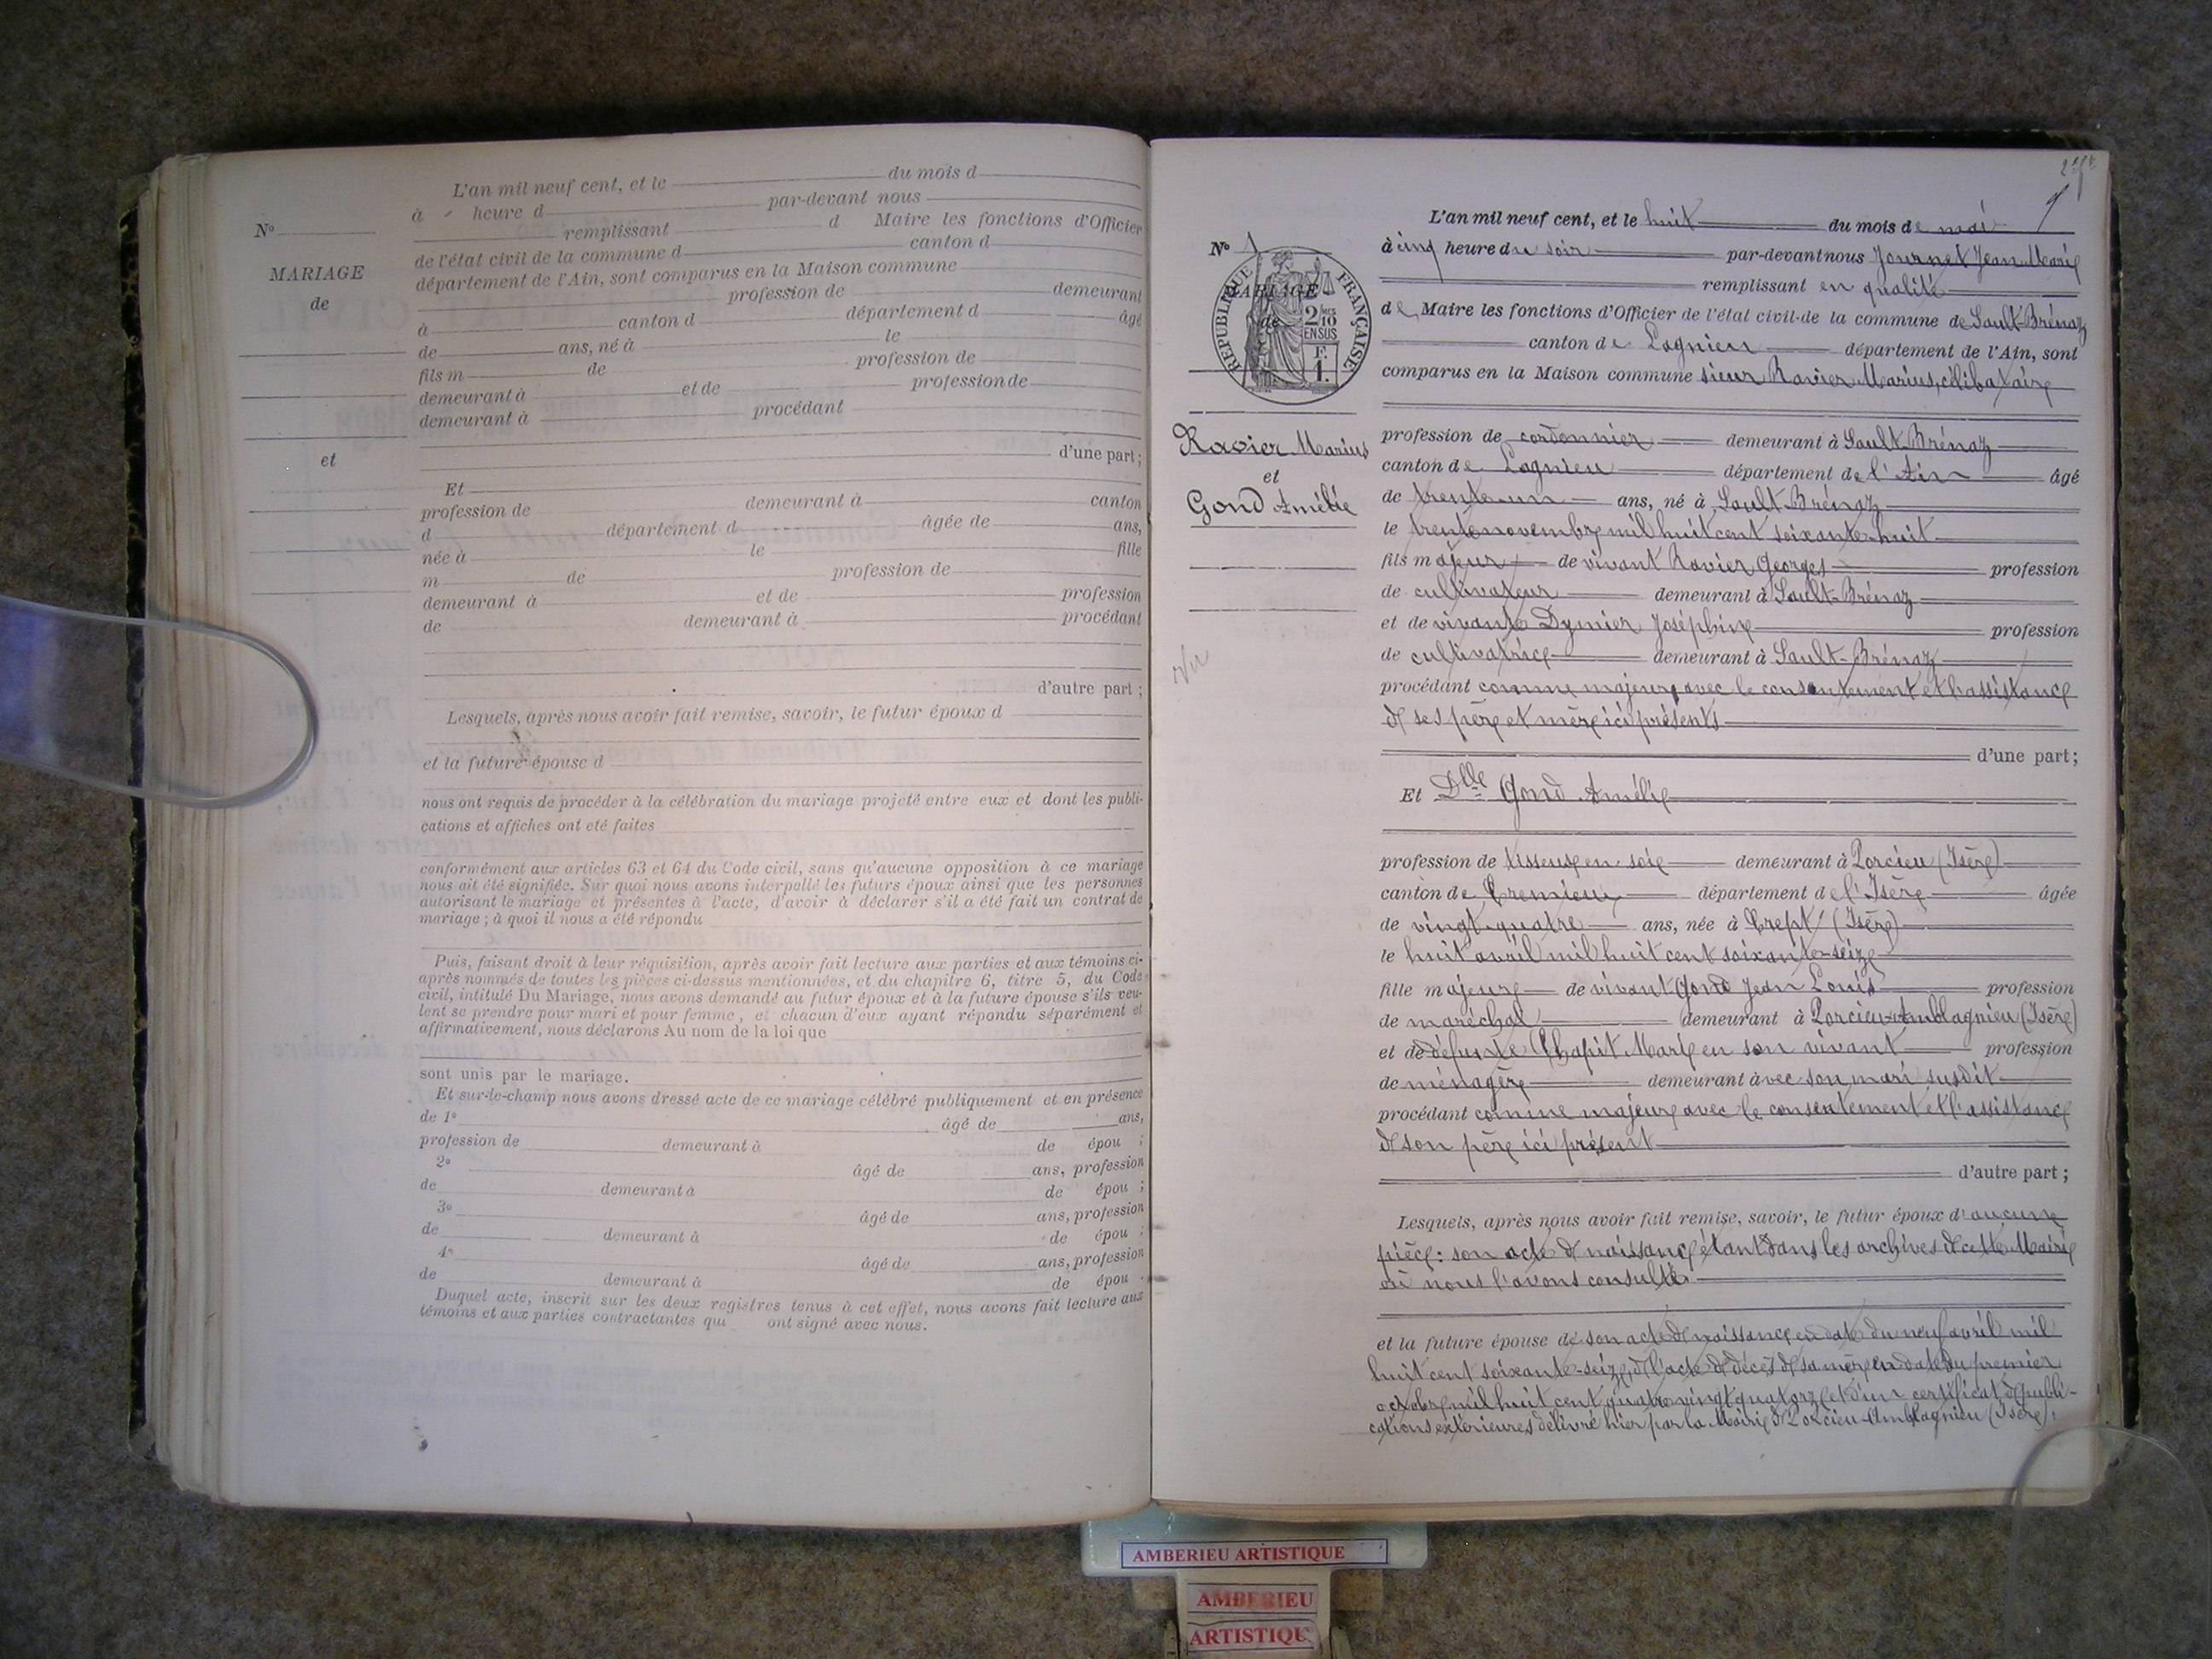 L'an mil neuf cent, et le du mois d
à heure d par-devant nous
remplissant d Maire les fonctions d'Officier
de l'état civil de la commune d canton d
département de l'Ain, sont comparus en la Maison commune
profession de demeurant
à canton d département d âgé
de ans, né à le
fils m de profession de
demeurant à et de profession de
demeurant à procédant
d'une part;
Nº
MARIAGE
de
et
Et
profession de demeurant à canton
d département d âgée de ans,
née à le fille
m de profession de
demeurant à et de profession
de demeurant à procédant
d'autre part;
Lesquels, après nous avoir fait remise, savoir, le futur époux d
et la future épouse d
nous ont requis de procéder à la célébration du mariage projeté entre eux et dont les publi-
cations et affiches ont été faites
conformément aux articles 63 et 64 du Code civil, sans qu'aucune opposition à ce mariage
nous ait été signifiée. Sur quoi nous avons interpellé les futurs époux ainsi que les personnes
autorisant le mariage et présentes à l'acte, d'avoir à déclarer s'il a été fait un contrat de
mariage; à quoi il nous a été répondu
Puis, faisant droit à leur réquisition, après avoir fait lecture aux parties et aux témoins ci-
après nommés de toutes les pièces ci-dessus mentionnées, et du chapitre 6, titre 5, du Code
civil, intitulé Du Mariage, nous avons demandé au futur époux et à la future épouse s'ils veu-
lent se prendre pour mari et pour femme, et chacun d'eux ayant répondu séparément et
affirmativement, nous déclarons Au nom de la loi que
sont unis par le mariage.
Et sur-le-champ nous avons dressé acte de ce mariage célébré publiquement et en présence
de 1º âgé de ans,
profession de demeurant à de épou ;
2º âgé de ans, profession
de demeurant à de épou ;
3º âgé de ans, profession
de demeurant à de épou ;
4º âgé de ans, profession
de demeurant à de épou .
Duquel acte, inscrit sur les deux registres tenus à cet effet, nous avons fait lecture aux
témoins et aux parties contractantes qui ont signé avec nous.
Nº 1
MARIAGE
de
RÉPUBLIQUE FRANÇAISE
2/10
EN SUS
F.
1.
Ravier Marius
et
Gond Amélie
Vu
L'an mil neuf cent, et le huit du mois de mai
à cinq heure du soir par-devant nous Journet Jean Marie
remplissant en qualité
de Maire les fonctions d'Officier de l'état civil de la commune de Sault-Brénaz
canton de Lagnieu département de l'Ain, sont
comparus en la Maison commune sieur Ravier Marius, célibataire
profession de cordonnier demeurant à Sault-Brénaz
canton de Lagnieu département de l'Ain âgé
de trente-un ans, né à Sault-Brénaz
le trente novembre mil huit cent soixante-huit
fils majeur de vivant Ravier Georges profession
de cultivateur demeurant à Sault-Brénaz
et de vivante Dymier Joséphine profession
de cultivatrice demeurant à Sault-Brénaz
procédant comme majeur, avec le consentement et l'assistance
de ses père et mère ici présents
d'une part;
Et Dlle Gond Amélie
profession de tisseuse en soie demeurant à Porcieu (Isère)
canton de Cremieu département de l'Isère âgée
de vingt-quatre ans, née à Crept (Isère)
le huit avril mil huit cent soixante-seize
fille majeure de vivant Gond Jean Louis profession
de maréchal demeurant à Porcieu-Amblagnieu (Isère)
et de défunte Chapit Marie en son vivant profession
de ménagère demeurant à avec son mari susdit
procédant comme majeure avec le consentement et l'assistance
de son père ici présent
d'autre part;
Lesquels, après nous avoir fait remise, savoir, le futur époux d'aucune
pièce: son acte de naissance étant dans les archives de cette Mairie
où nous l'avons consulté.
et la future épouse de son acte de naissance en date du neuf avril mil
huit cent soixante-seize, de l'acte de décès de sa mère en date du premier
octobre mil huit cent quatre vingt quatorze et d'un certificat de publi-
cations extérieures délivré hier par la Mairie de Porcieu-Amblagnieu (Isère);
AMBERIEU ARTISTIQUE
AMBERIEU
ARTISTIQUE